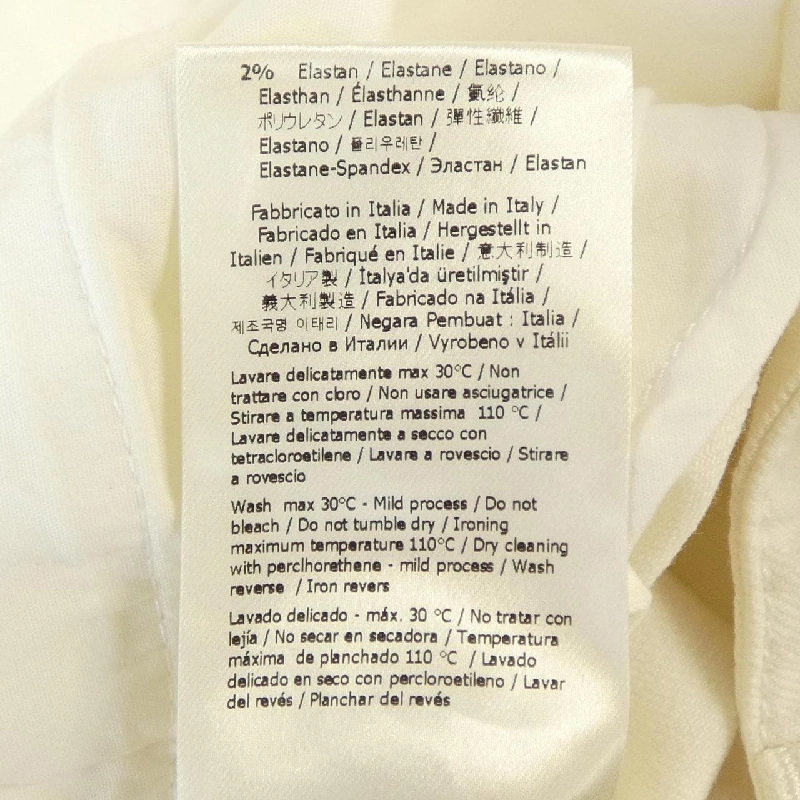 2% Elastan / Elastane / Elastano /
Elasthan / Élasthanne / 氨纶 /
ポリウレタン / Elastan / 彈性纖維 /
Elastano / 폴리우레탄 /
Elastane-Spandex / Эластан / Elastan
Fabbricato in Italia / Made in Italy /
Fabricado en Italia / Hergestellt in
Italien / Fabriqué en Italie / 意大利制造 /
イタリア製 / İtalya'da üretilmiştir /
義大利製造 / Fabricado na Itália /
제조국명 이태리 / Negara Pembuat : Italia /
Сделано в Италии / Vyrobeno v Itálii
Lavare delicatamente max 30°C / Non
trattare con cloro / Non usare asciugatrice /
Stirare a temperatura massima 110 °C /
Lavare delicatamente a secco con
tetracloroetilene / Lavare a rovescio / Stirare
a rovescio
Wash max 30°C - Mild process / Do not
bleach / Do not tumble dry / Ironing
maximum temperature 110°C / Dry cleaning
with perclhorethene - mild process / Wash
reverse / Iron revers
Lavado delicado - máx. 30 °C / No tratar con
lejía / No secar en secadora / Temperatura
máxima de planchado 110 °C / Lavado
delicado en seco con percloroetileno / Lavar
del revés / Planchar del revés